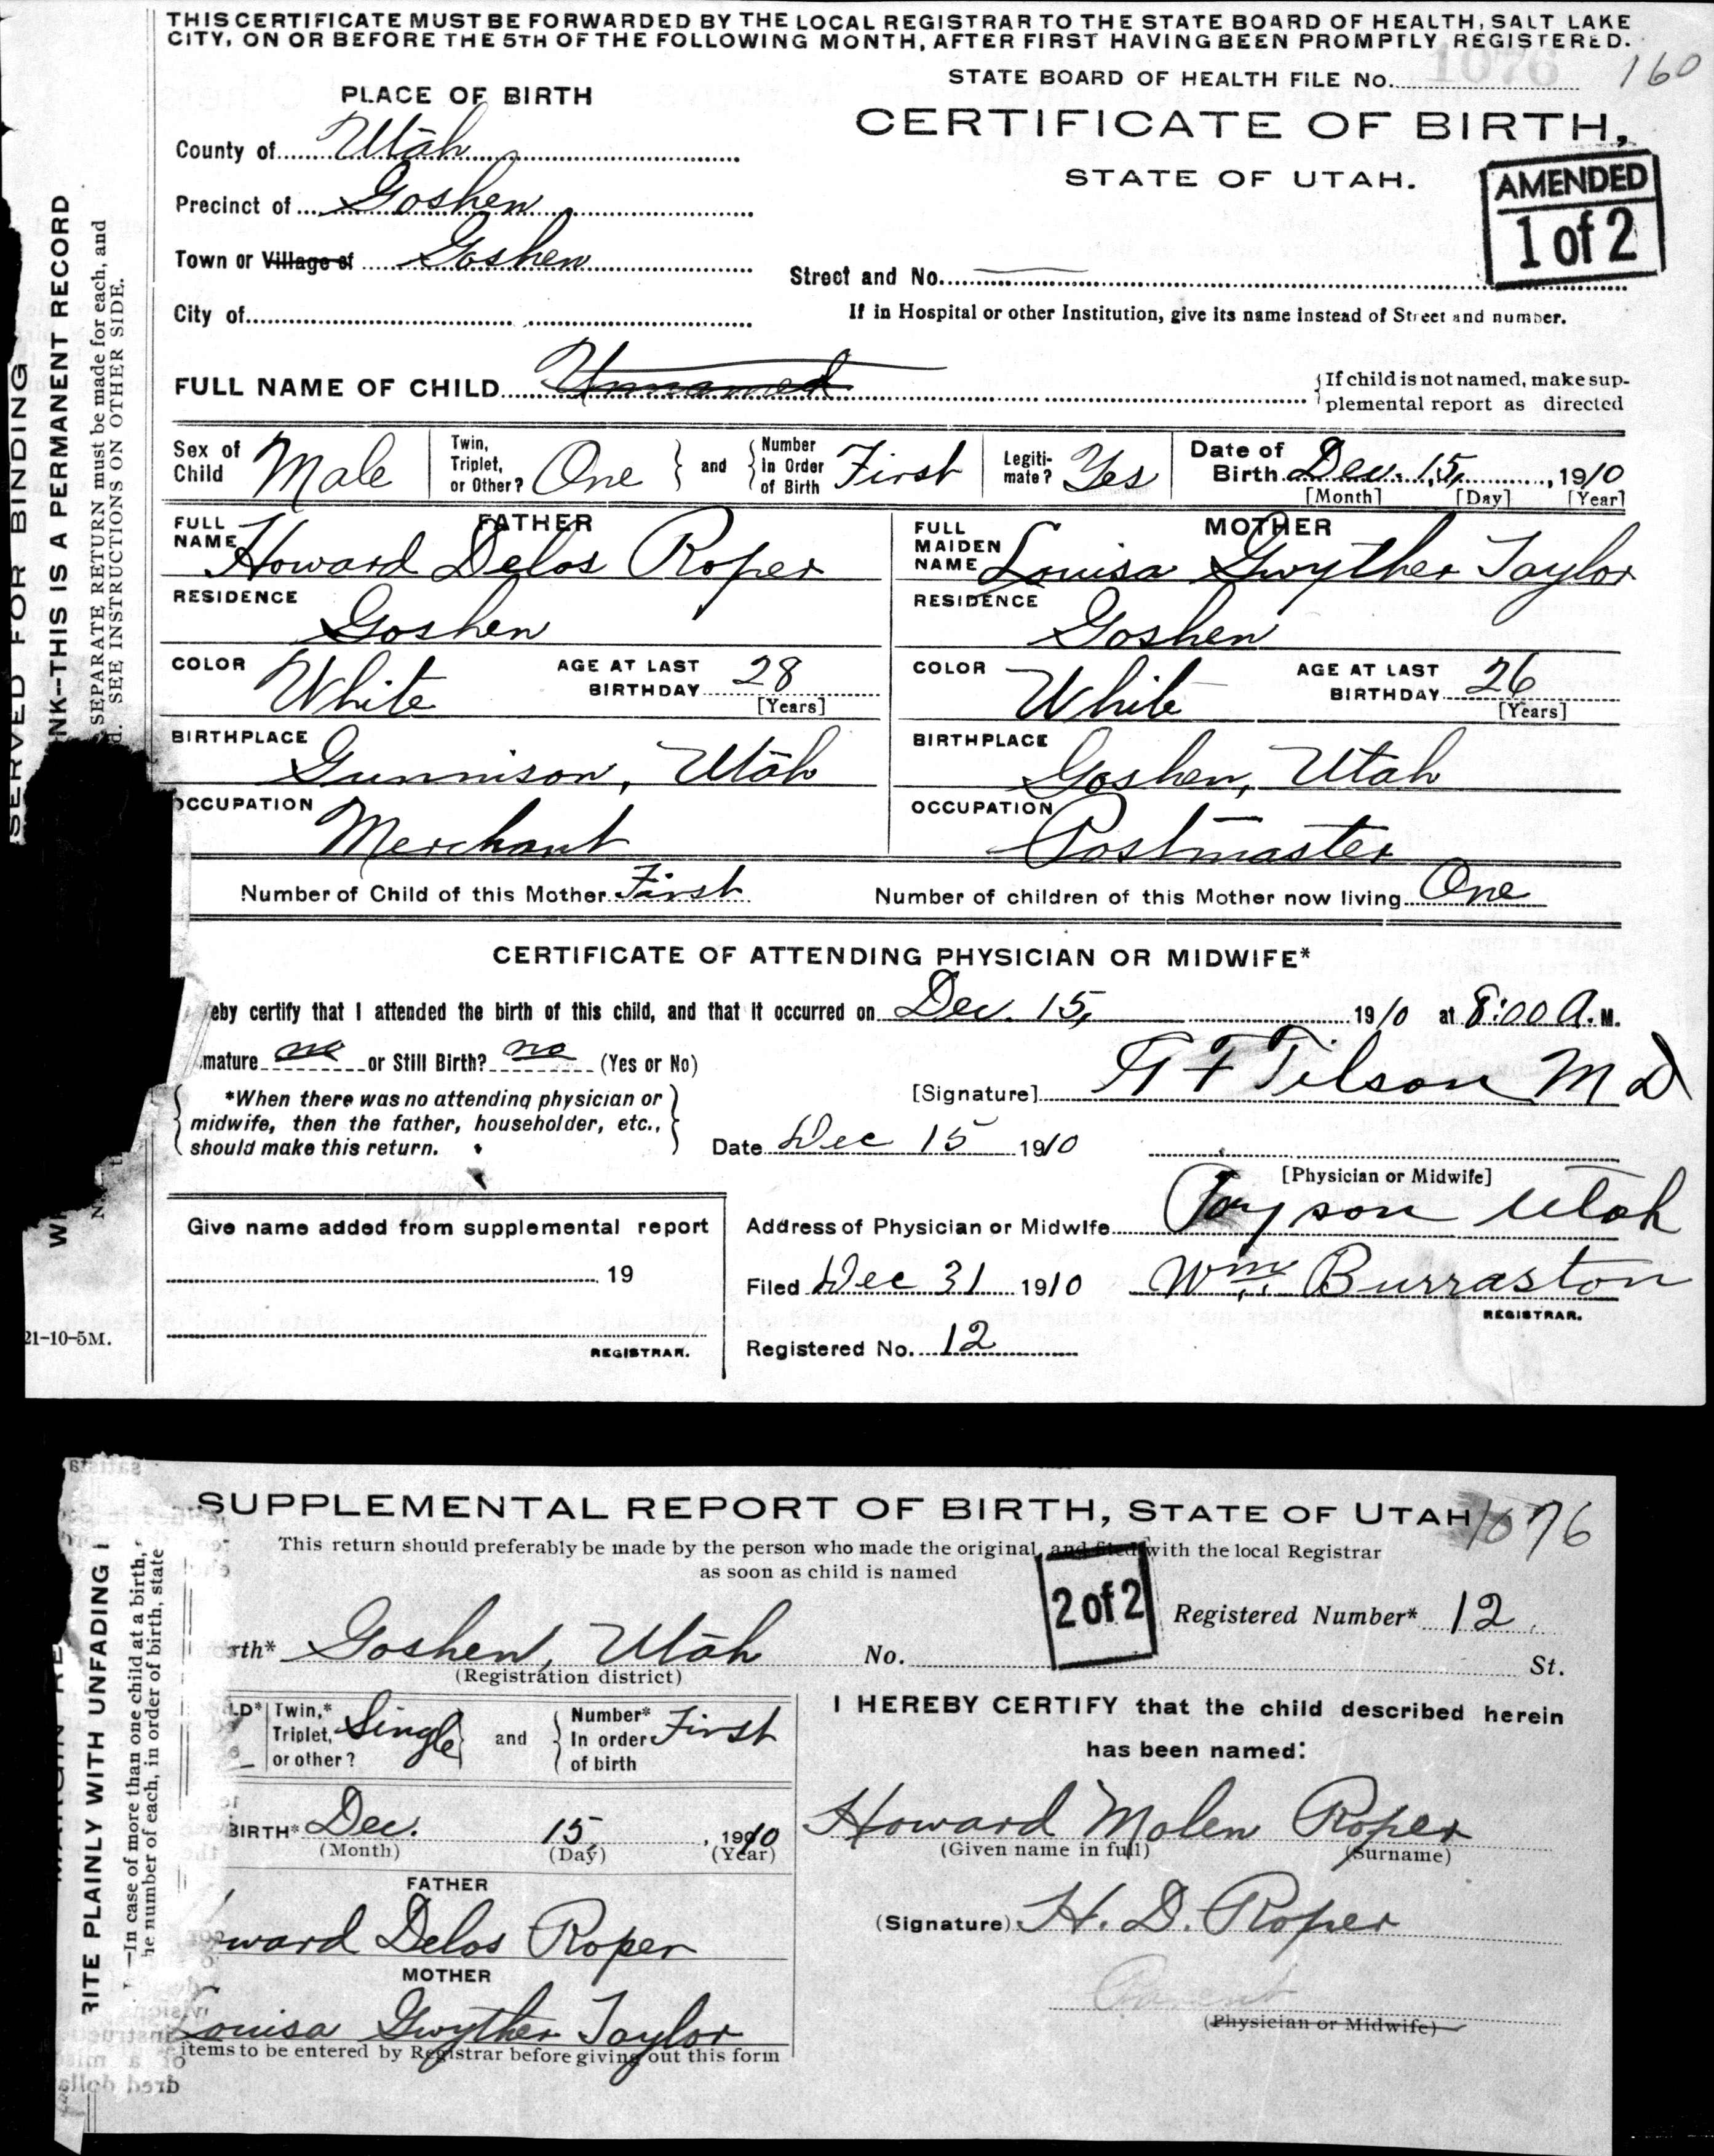 THIS CERTIFICATE MUST BE FORWARDED BY THE LOCAL REGISTRAR TO THE STATE BOARD OF HEALTH, SALT LAKE
CITY, ON OR BEFORE THE 5TH OF THE FOLLOWING MONTH, AFTER FIRST HAVING BEEN PROMPTLY REGISTERED.
STATE BOARD OF HEALTH FILE No. 1076 160
PLACE OF BIRTH
CERTIFICATE OF BIRTH,
STATE OF UTAH.
AMENDED
1 of 2
County of Utah
Precinct of Goshen
Town or Village of Goshen
Street and No.
City of
If in Hospital or other Institution, give its name instead of Street and number.
FULL NAME OF CHILD Unnamed
If child is not named, make sup-
plemental report as directed
Sex of Child Male
Twin, Triplet, or Other? One and Number In Order of Birth First
Legiti-mate? Yes
Date of Birth Dec. 15, 1910
[Month] [Day] [Year]
FATHER
FULL NAME Howard Delos Roper
MOTHER
FULL MAIDEN NAME Louisa Gwyther Taylor
RESIDENCE Goshen
RESIDENCE Goshen
COLOR White AGE AT LAST BIRTHDAY 28 [Years]
COLOR White AGE AT LAST BIRTHDAY 26 [Years]
BIRTHPLACE Gunnison, Utah
BIRTHPLACE Goshen, Utah
OCCUPATION Merchant
OCCUPATION Postmaster
Number of Child of this Mother First Number of children of this Mother now living One
CERTIFICATE OF ATTENDING PHYSICIAN OR MIDWIFE*
eby certify that I attended the birth of this child, and that it occurred on Dec. 15, 1910 at 8:00 A. M.
mature no or Still Birth? no (Yes or No)
[Signature] Tilson M D
*When there was no attending physician or
midwife, then the father, householder, etc.,
should make this return.
Date Dec 15 1910
[Physician or Midwife]
Give name added from supplemental report
19
REGISTRAR.
Address of Physician or Midwife Payson Utah
Filed Dec 31 1910 Wm. Burraston
REGISTRAR.
Registered No. 12
SERVED FOR BINDING
NK--THIS IS A PERMANENT RECORD
SEPARATE RETURN must be made for each, and
d. SEE INSTRUCTIONS ON OTHER SIDE.
21-10-5M.
SUPPLEMENTAL REPORT OF BIRTH, STATE OF UTAH 1076
This return should preferably be made by the person who made the original, and filed with the local Registrar
as soon as child is named
2 of 2
Registered Number* 12
rth* Goshen, Utah No. St.
(Registration district)
LD* Twin,* Triplet, or other? Single and Number* In order of birth First
BIRTH* Dec. 15, 1910
(Month) (Day) (Year)
FATHER
ward Delos Roper
MOTHER
Louisa Gwyther Taylor
items to be entered by Registrar before giving out this form
I HEREBY CERTIFY that the child described herein
has been named:
Howard Molen Roper
(Given name in full) (Surname)
(Signature) H. D. Roper
Parent
(Physician or Midwife)
RITE PLAINLY WITH UNFADING I
—In case of more than one child at a birth,
he number of each, in order of birth, state